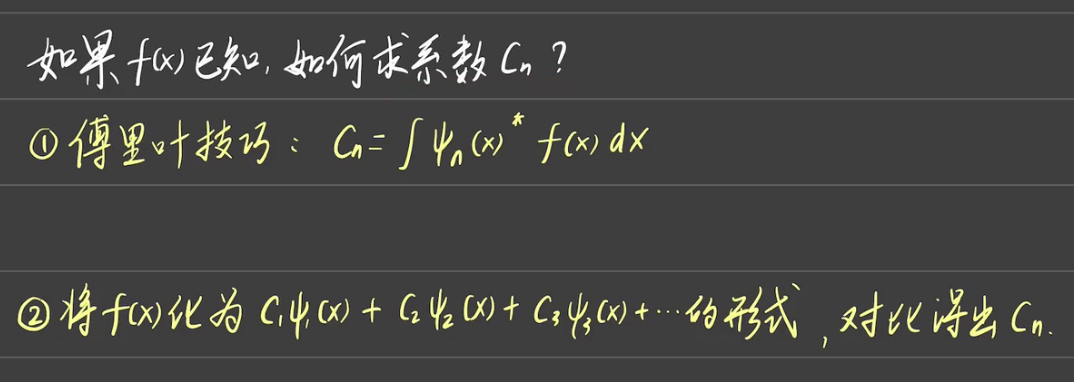 如果f(x)已知,如何求系数Cn?
①傅里叶技巧: Cn=∫ψn(x)* f(x)dx
②将f(x)化为C₁ψ₁(x)+C₂ψ₂(x)+C₃ψ₃(x)+…的形式,对比得出Cn.